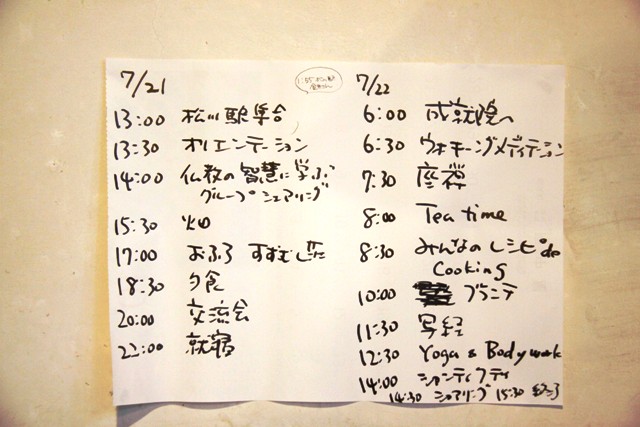 7/21
13:00 松川駅集合
13:30 オリエンテーション
14:00 仏教の智慧に学ぶ
グループシェアリング
15:30 畑
17:00 おふろ すずむし荘
18:30 夕食
20:00 交流会
22:00 就寝
7/22
6:00 成就院へ
6:30 ウォーキングメディテーション
7:30 座禅
8:00 Tea time
8:30 みんなのレシピde
Cooking
10:00 ブランチ
11:30 写経
12:30 Yoga & Bodywork
14:00 シャンティフティ
14:30 シェアリング 15:30 終了